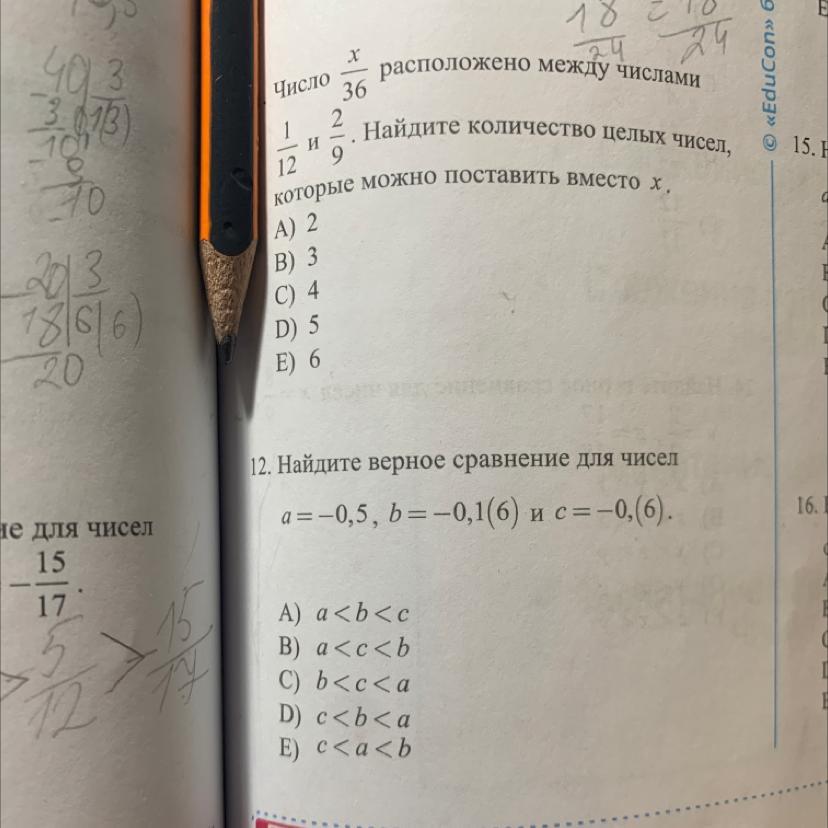 40 3
3 0,1(3)
10
9
10
20 3
18 6(6)
20
ие для чисел
− 15/17 .
> 5/12 > 15/17
18/24 = 18/24
Число x/36 расположено между числами
1/12 и 2/9 . Найдите количество целых чисел,
которые можно поставить вместо x.
A) 2
B) 3
C) 4
D) 5
E) 6
12. Найдите верное сравнение для чисел
a=−0,5, b=−0,1(6) и c=−0,(6).
A) a<b<c
B) a<c<b
C) b<c<a
D) c<b<a
E) c<a<b
© «EduCon» б
15. Н
16. Н